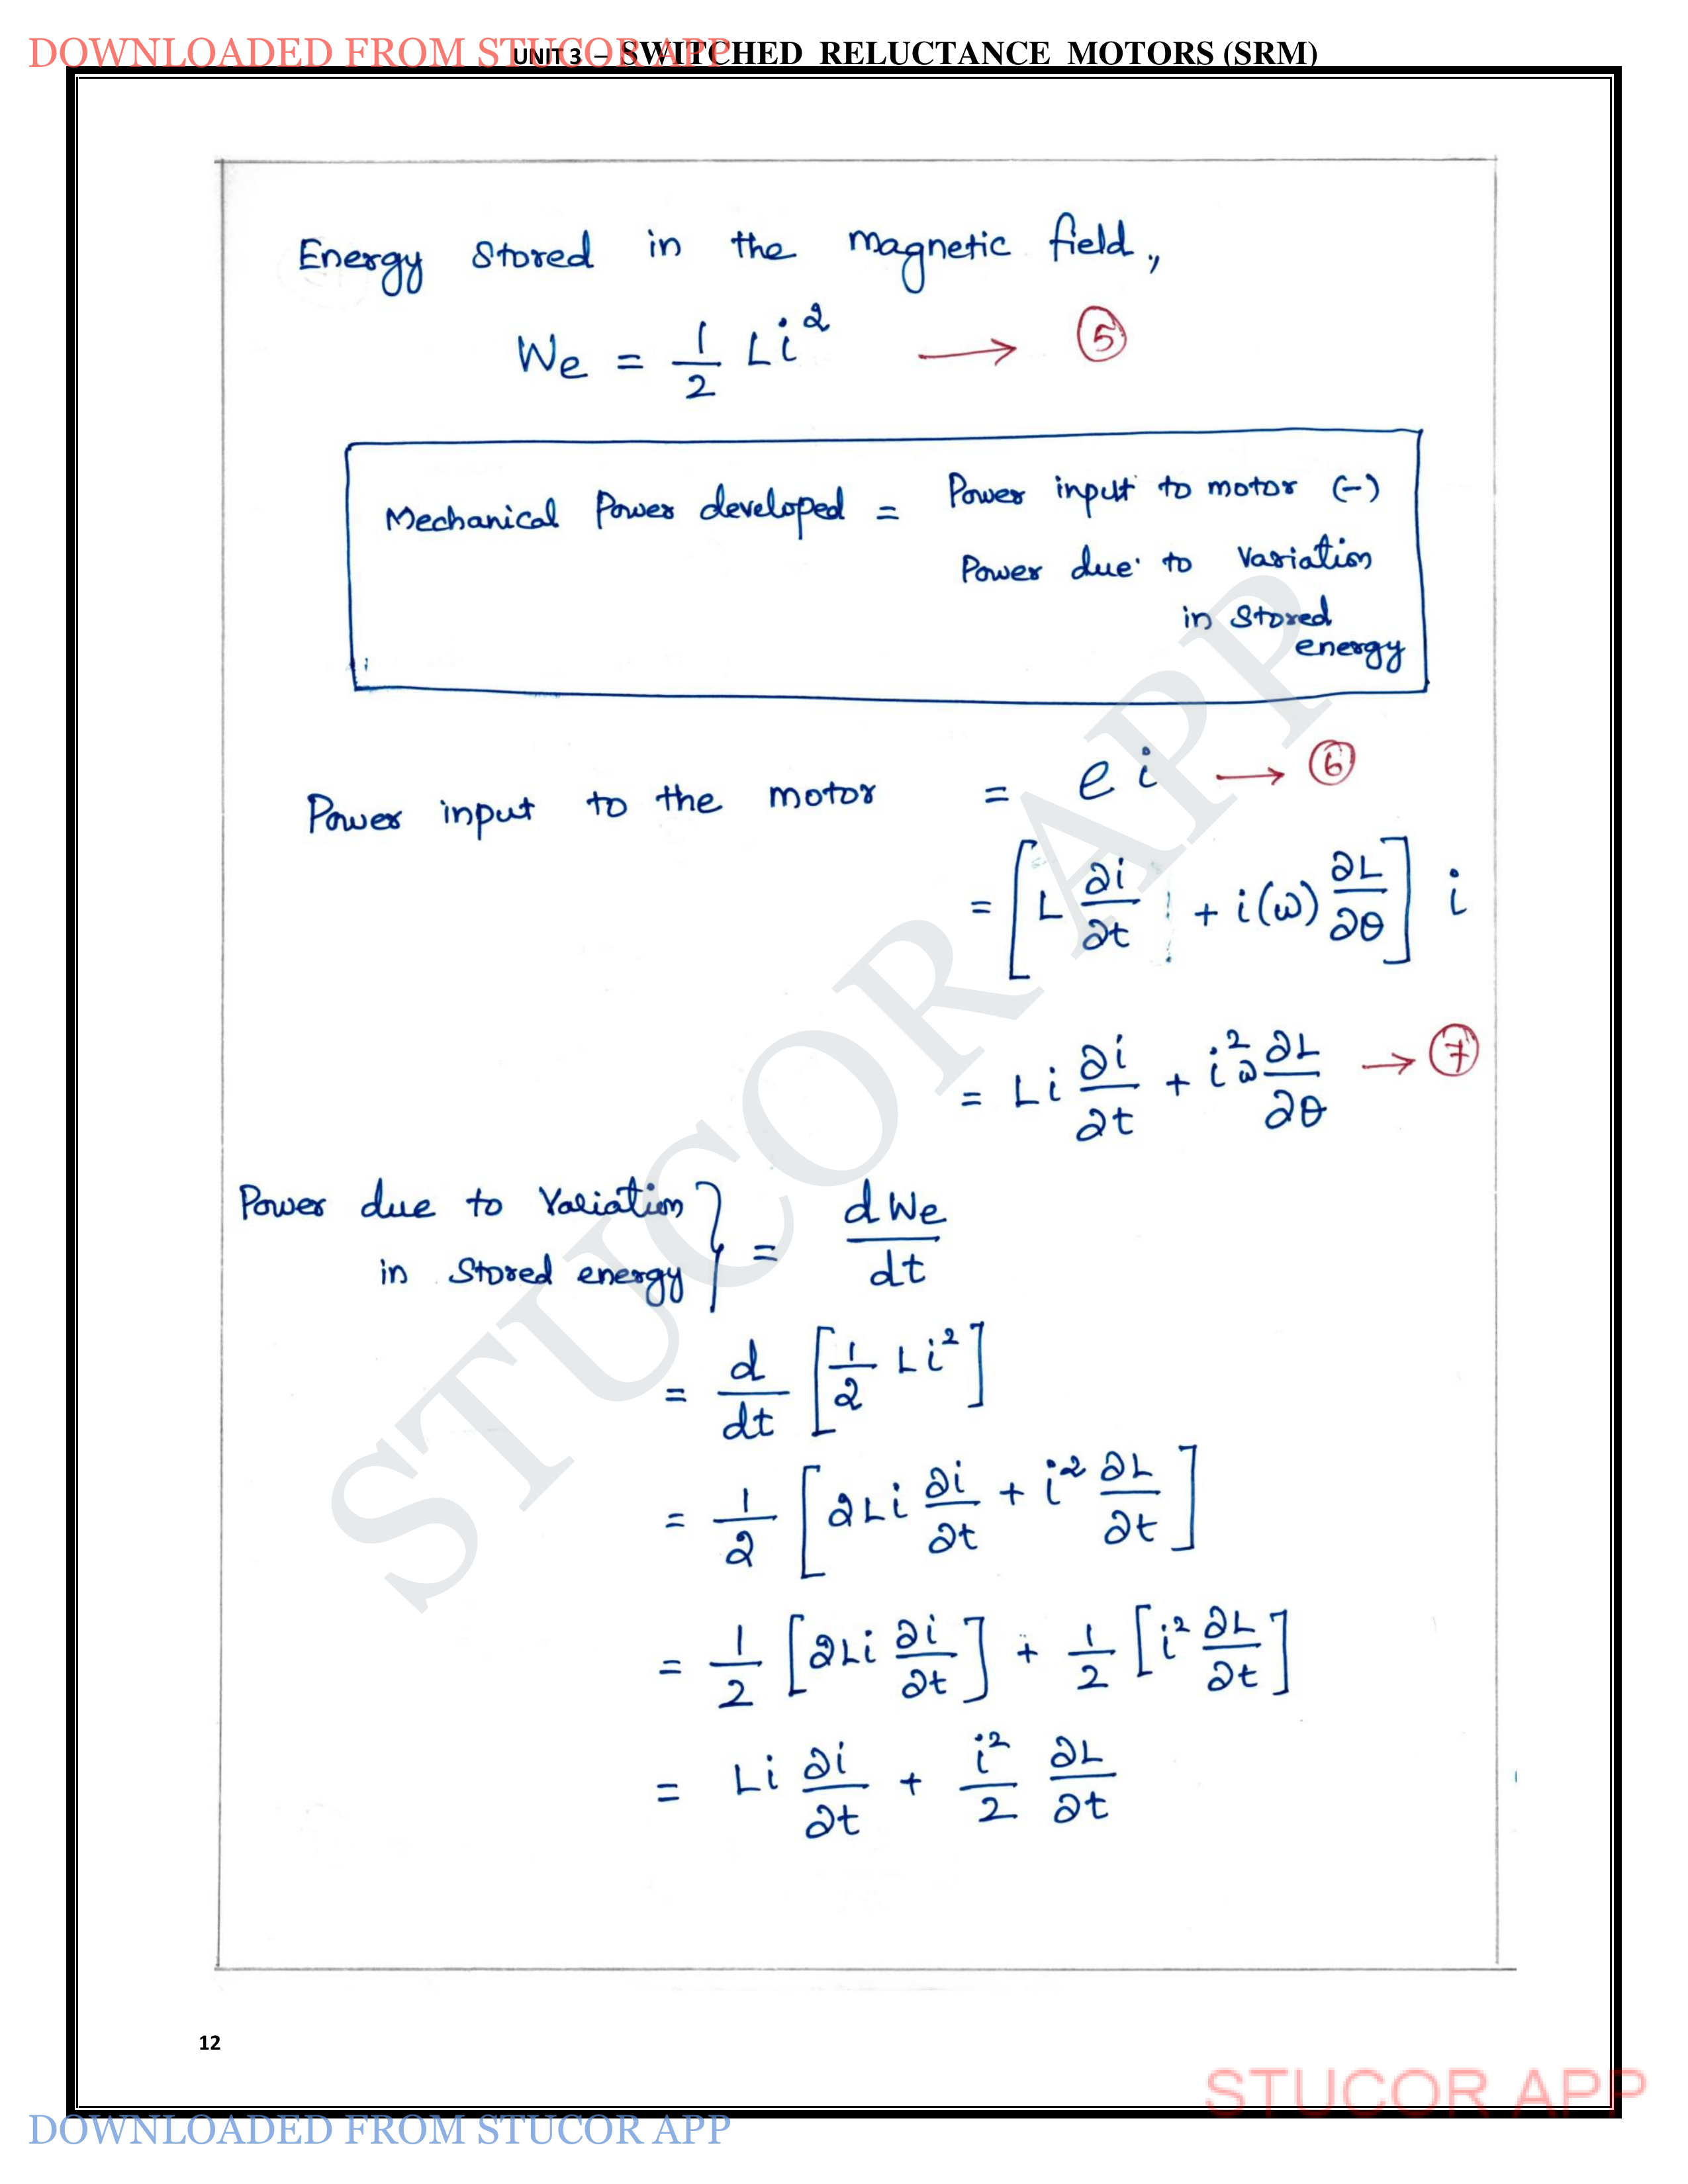 DOWNLOADED FROM STUCOR APP
UNIT 3 – SWITCHED RELUCTANCE MOTORS (SRM)
Energy Stored in the magnetic field,
We = 1/2 Li² → ⑤
Mechanical Power developed = Power input to motor (-)
Power due to Variation
in Stored
energy
Power input to the motor = e i → ⑥
= [L ∂i/∂t + i(ω) ∂L/∂θ] i
= Li ∂i/∂t + i²ω ∂L/∂θ → ⑦
Power due to Variation
in Stored energy } = dWe/dt
= d/dt [1/2 Li²]
= 1/2 [2Li ∂i/∂t + i² ∂L/∂t]
= 1/2 [2Li ∂i/∂t] + 1/2 [i² ∂L/∂t]
= Li ∂i/∂t + i²/2 ∂L/∂t
STUCOR APP
12
STUCOR APP
DOWNLOADED FROM STUCOR APP